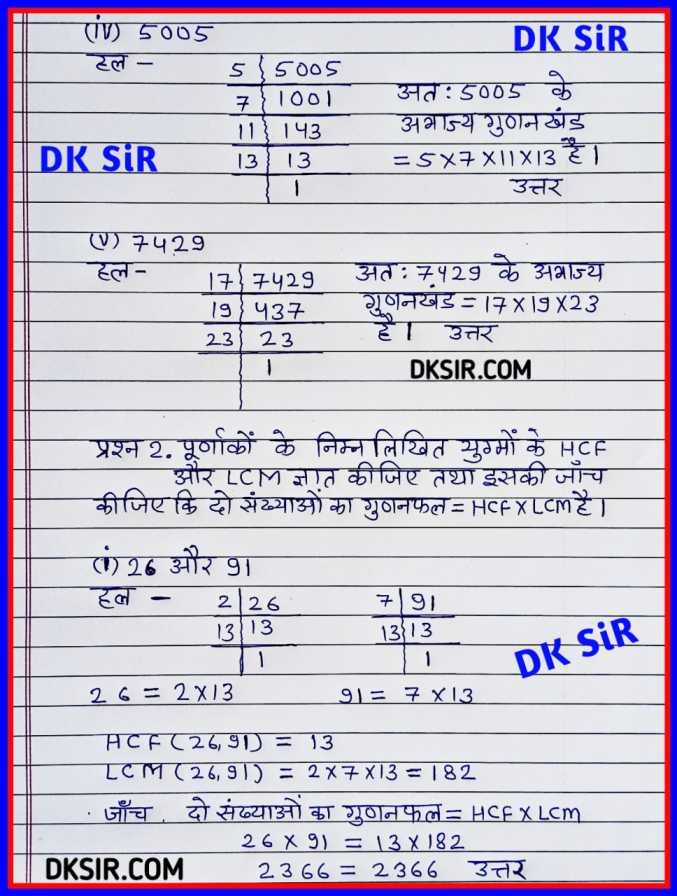 (iv) 5005
DK SiR
हल -
5 | 5005
7 | 1001
11 | 143
13 | 13
1
अत: 5005 के
अभाज्य गुणनखंड
= 5×7×11×13 है।
उत्तर
DK SiR
(v) 7429
हल-
17 | 7429
19 | 437
23 | 23
1
अत: 7429 के अभाज्य
गुणनखंड = 17×19×23
है। उत्तर
DKSIR.COM
प्रश्न 2. पूर्णांकों के निम्नलिखित युग्मों के HCF
और LCM ज्ञात कीजिए तथा इसकी जाँच
कीजिए कि दो संख्याओं का गुणनफल = HCF×LCM है।
(i) 26 और 91
हल -
2 | 26
13 | 13
1
7 | 91
13 | 13
1
DK SiR
26 = 2×13
91 = 7×13
HCF (26,91) = 13
LCM (26,91) = 2×7×13 = 182
जाँच. दो संख्याओं का गुणनफल = HCF×LCM
26 × 91 = 13×182
2366 = 2366 उत्तर
DKSIR.COM